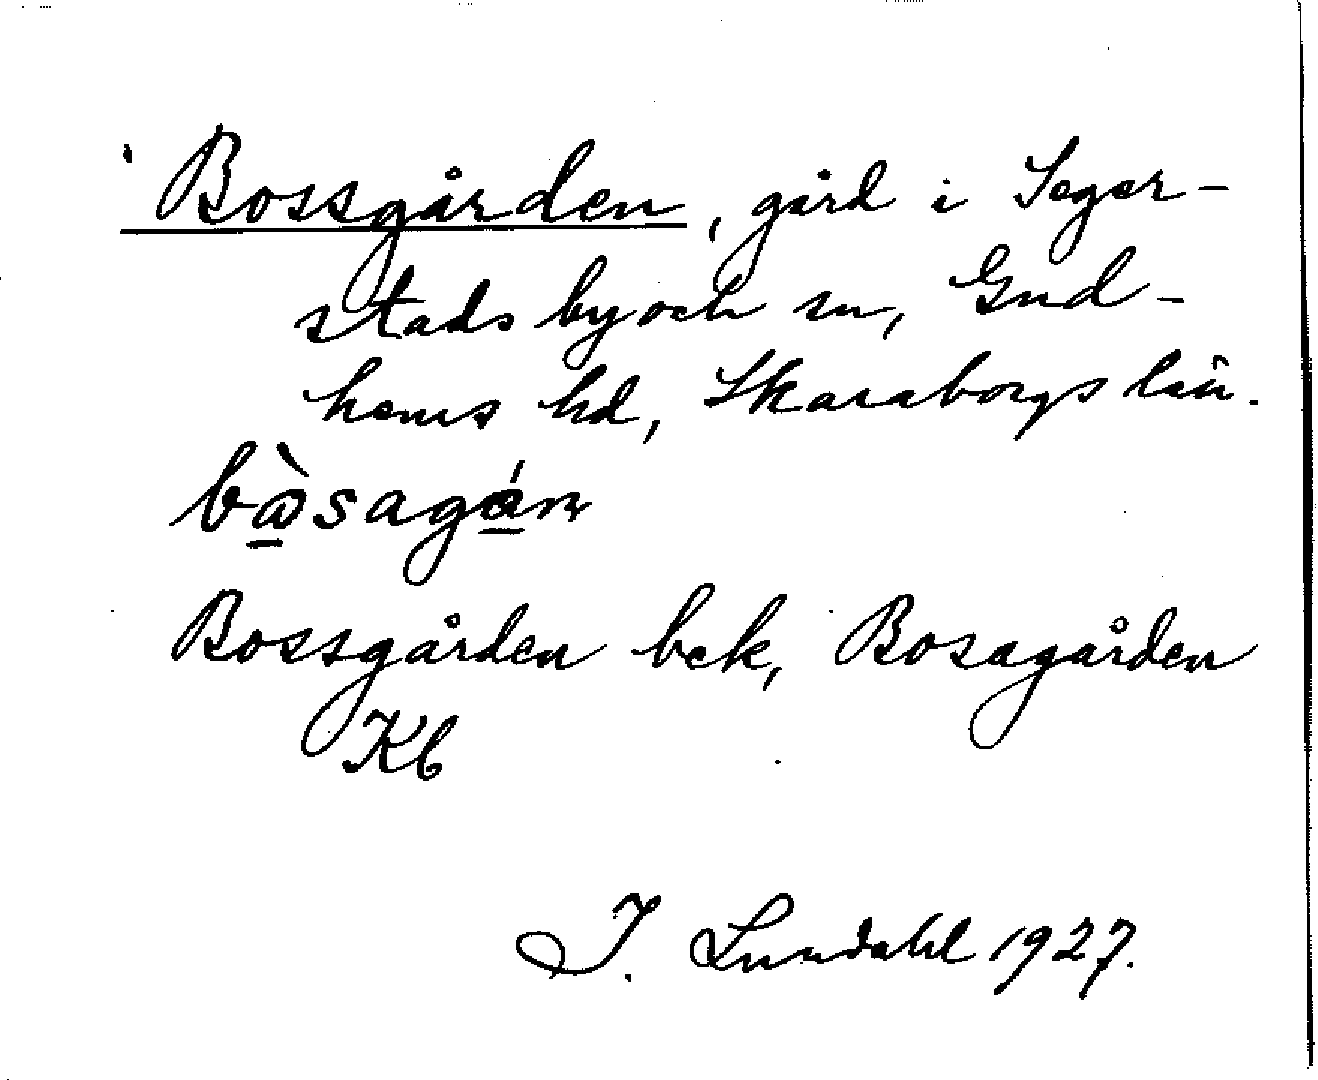 Bossgården, gård i Seger-
stads by och sn, Gud-
hems hd, Skaraborgs län.
bàsagán
Bossgården bek, Bosagården
Kb
I. Lundahl 1927.